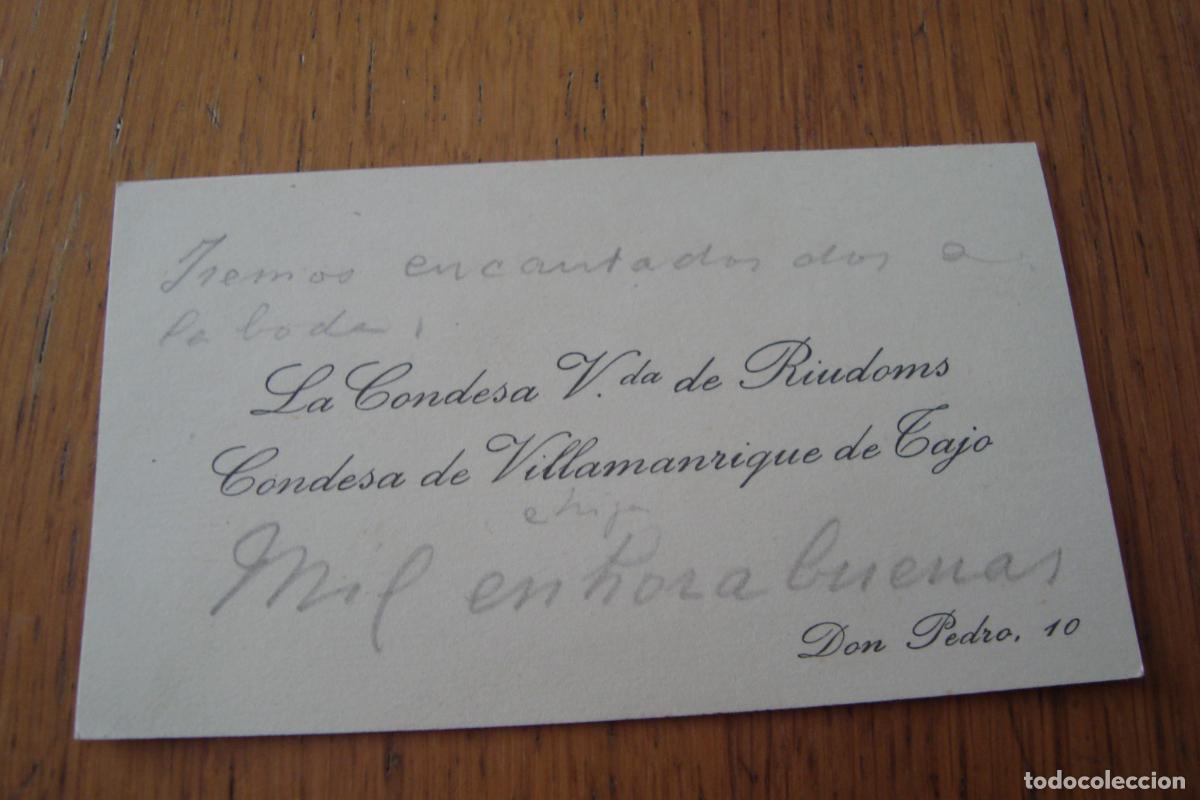 Iremos encantados dos a
la boda.
La Condesa V.da de Riudoms
Condesa de Villamanrique de Tajo
e hija
Mil enhorabuenas
Don Pedro, 10
todocoleccion